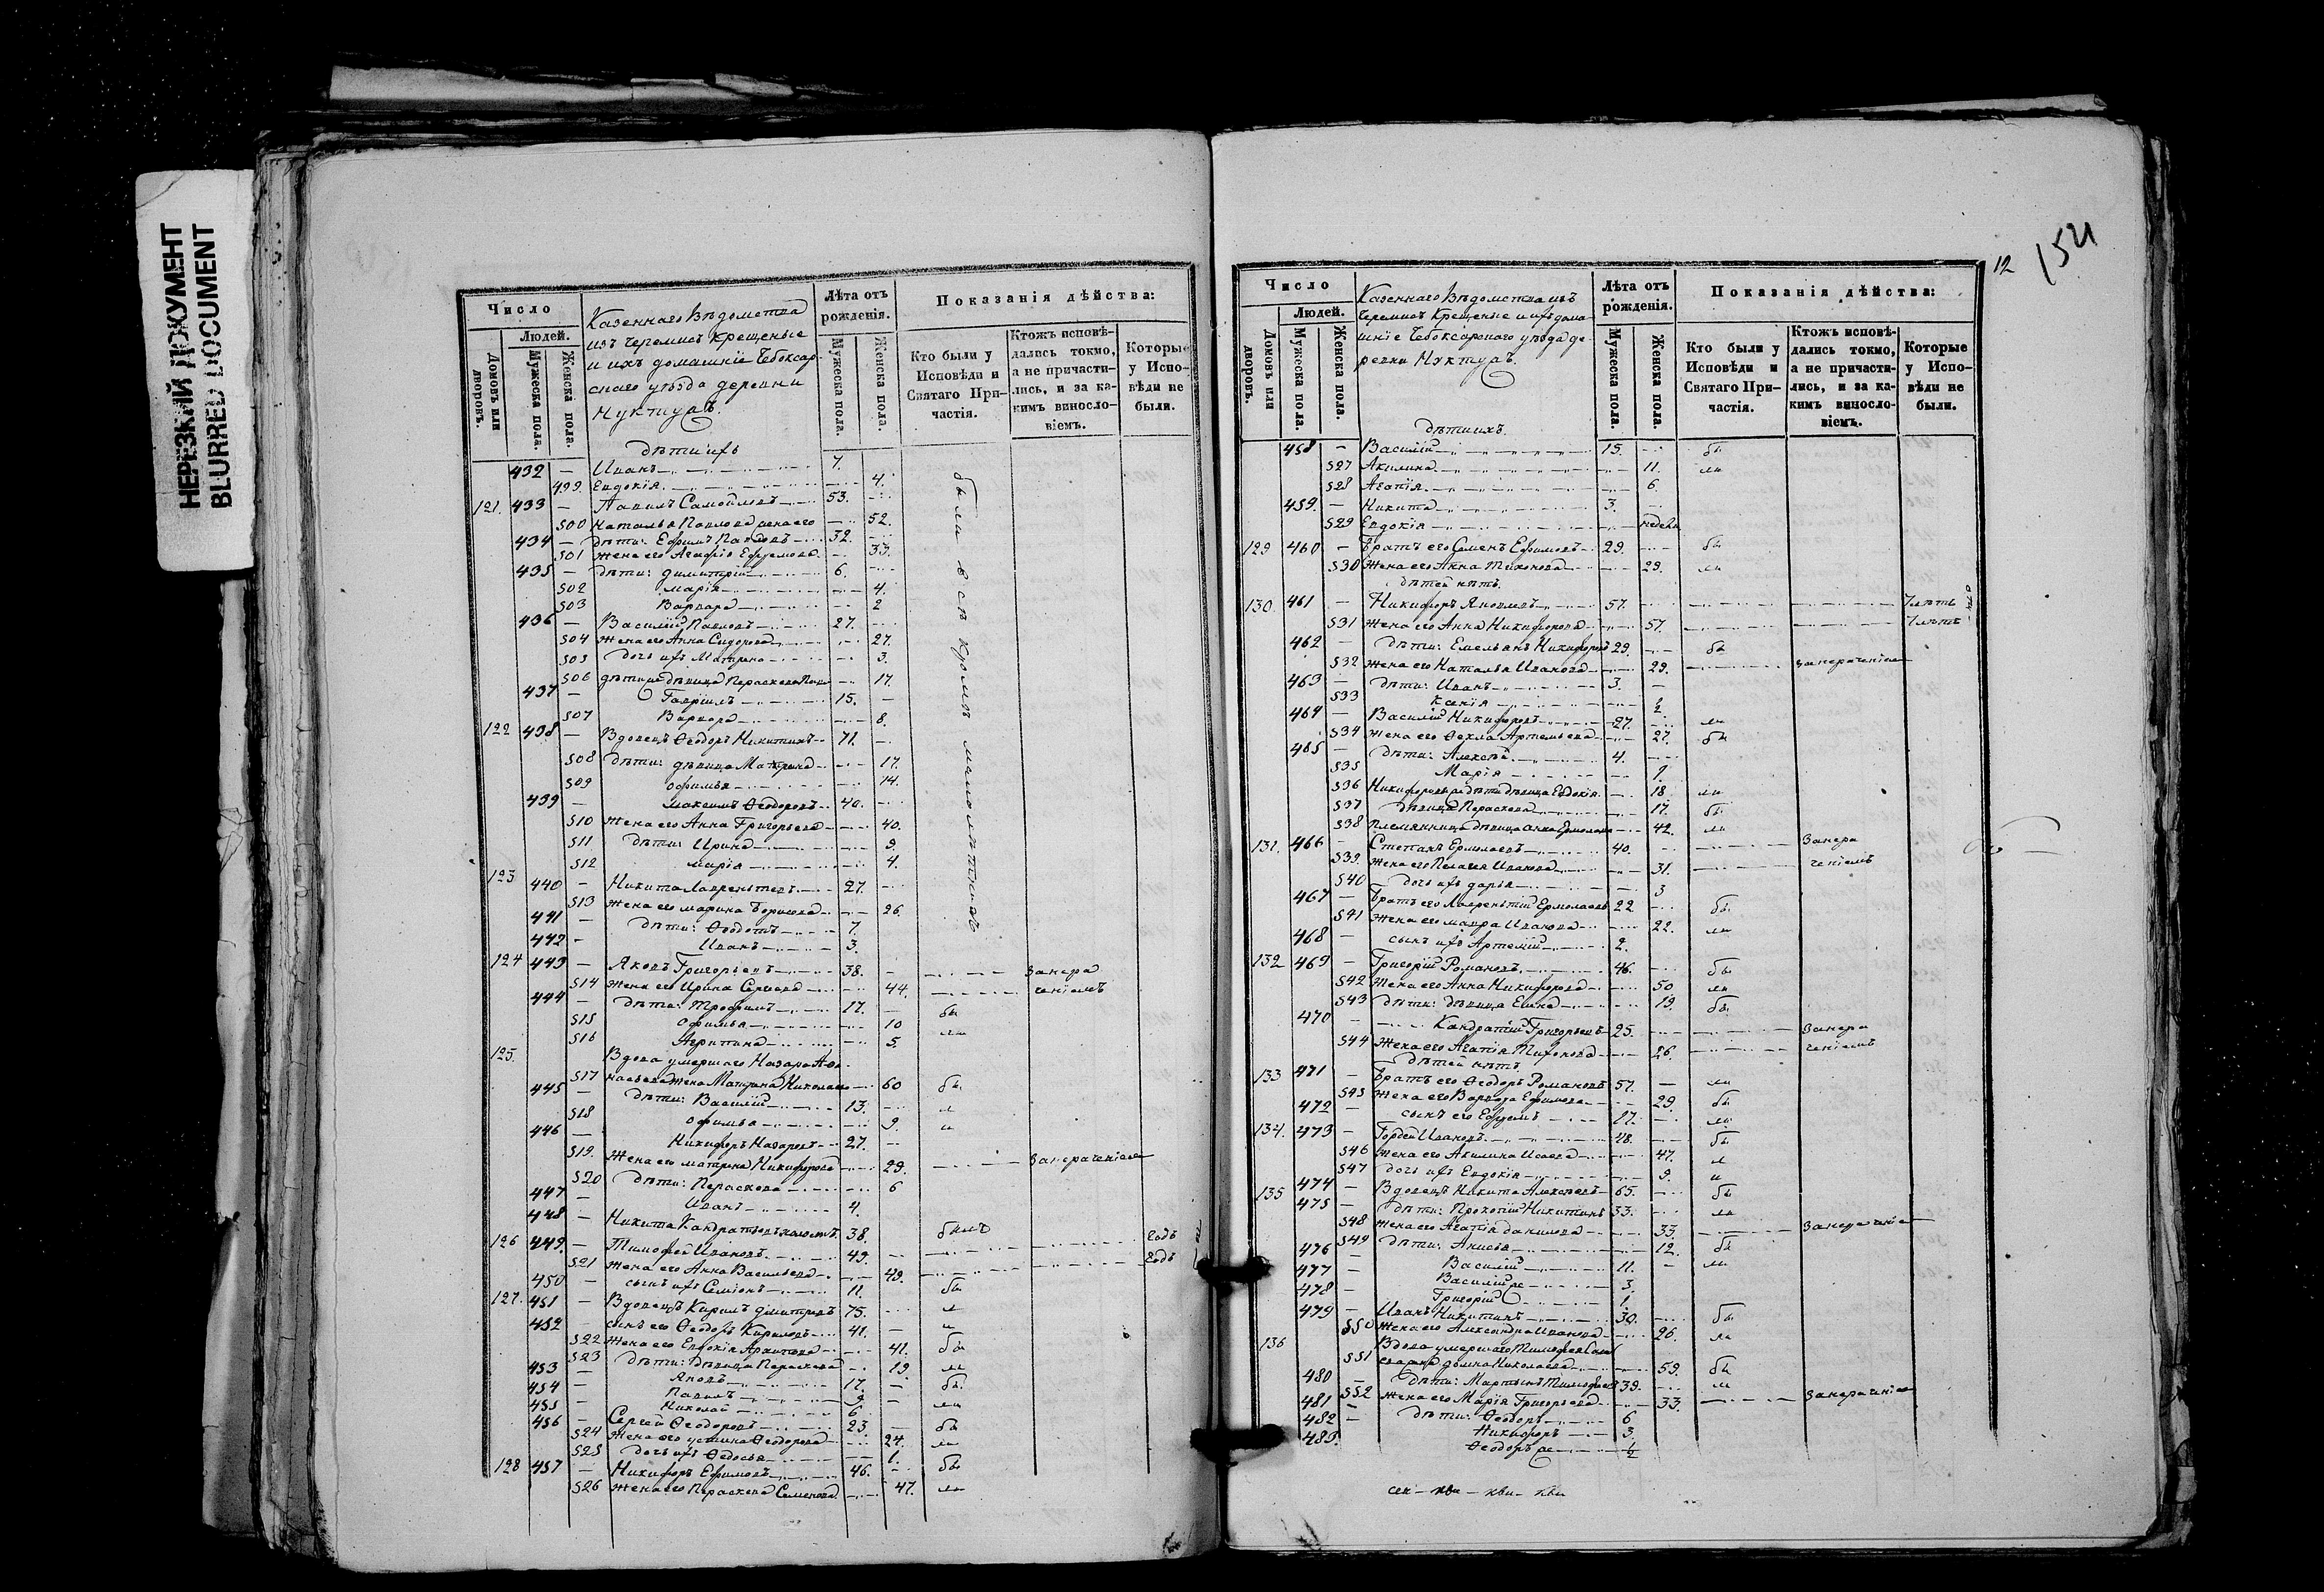 НЕРЕЗКИЙ ДОКУМЕНТ
BLURRED DOCUMENT
Число
Людей.
Домовъ или дворовъ.
Мужеска пола.
Женска пола.
Казеннаго Вѣдомства
изъ черемисъ Крещеные
и ихъ домашніе Чебоксар-
скаго уѣзда деревни
Нуктужъ.
Лѣта отъ рожденія.
Мужеска пола.
Женска пола.
Показанія дѣйства:
Кто были у Исповѣди и Святаго При-частія.
Ктожъ исповѣ-дались токмо, а не причасти-лись, и за ка-кимъ винословіемъ.
Которые у Испо-вѣди не были.
дѣти ихъ
432 — Иванъ 7.
499. Евдокія 4.
121. 433 — Павилъ Самойловъ 53.
500 Наталья Павлова жена его 52.
434 — дѣти: Ефимъ Павловъ 32.
501 Жена его Агафія Ефремова 33.
435 — дѣти: Димитрій 6.
502 Марія 4.
503 Варвара 2
436 — Василій Павловъ 27.
504 Жена его Анна Сидорова 27.
505 Дочь ихъ Матрена 3.
506 дѣвица Параскева 17.
437 — Гаврилъ 15.
507 Варвара 8.
122 438 — Вдовецъ Ѳеодоръ Никитинъ 71.
508 Дѣти: дѣвица Матрена 17.
509 Офимья 14.
439 — Максимъ Ѳеодоровъ 40.
510 Жена его Анна Григорьева 40.
511 дѣти: Ирина 9.
512 Марія 4.
были всѣ кромѣ малолѣтныхъ
123 440 — Никита Лаврентьевъ 27.
513 Жена его Марина Борисова 26.
441 — дѣти: Ѳедотъ 7.
442 — Иванъ 3.
124 443 — Яковъ Григорьевъ 38. Занера
514 Жена его Ирина Сергеева 44. ченіемъ
444 — Дѣти: Трофимъ 17. бы
515 Офимья 10 ли
516 Агрипина 5.
125. Вдова умершаго Назара Афа-
517 насьева жена Матрена Николаева 60 бы
445 — Дѣти: Василій 13. л
518 Офимья 9. и
446 — Никифоръ Назаровъ 27.
519. Жена его Матрена Никифорова 29. Занераченіем
520 Дѣти: Параскева 6
447 — Иванъ 4.
448 — Никита Кандратьевъ холостъ 38. былъ
126 449. — Тимофей Ивановъ 49. Годъ
521 Жена его Анна Васильева 49. Годъ
450 — сынъ ихъ Семіонъ 11. бы
127. 451 — Вдовецъ Кирилъ Дмитревъ 75. л
452 сынъ его Ѳеодоръ Кириловъ 41. и
522 Жена его Евдокія Архипова 41. бы
523 Дѣти: Дѣвица Параскева 19. ли
453 — Яковъ 17. бы
454 — Павилъ 9. ли
455 — Николай 6
456 — Сергей Ѳеодоровъ 23. бы
524 Жена его Устина Ѳеодорова 24. ли
525 Дочь ихъ Ѳедосья 1.
128 457 — Никифоръ Ефимовъ 46. бы
526 Жена его Параскева Семенова 47. ли
12
154
Число
Людей.
Домовъ или дворовъ.
Мужеска пола.
Женска пола.
Казеннаго Вѣдомства изъ
Черемисъ Крещеные и ихъ дома-
шніе Чебоксарскаго уѣзда де-
ревни Нуктужъ.
Лѣта отъ рожденія.
Мужеска пола.
Женска пола.
Показанія дѣйства:
Кто были у Исповѣди и Святаго При-частія.
Ктожъ исповѣ-дались токмо, а не причасти-лись, и за ка-кимъ винословіемъ.
Которые у Испо-вѣди не были.
дѣти ихъ.
458 — Василій 15. бы
527 Акилина 11. ли
528 Агапія 6.
459. — Никита 3.
529 Евдокія недели
129 460 — Братъ его Семенъ Ефимовъ 29. бы
530 Жена его Анна Тихонова 29. ли
дѣтей нѣтъ.
130. 461 — Никифоръ Яковлевъ 57. 7 лѣтъ
531 Жена его Анна Никифорова 57. 7 лѣтъ
462 — Дѣти: Емельянъ Никифоровъ 29. бы
532 Жена его Наталья Иванова 29. Занераченіем
463 — Дѣти: Иванъ 3.
533 Ксенія ½
464 — Василій Никифоровъ 27. ли
534 Жена его Ѳекла Артемьева 27. бы
465 — Дѣти: Алексѣй 4.
535 Марія 1.
536 Никифоровы дѣти дѣвица Евдокія 18. ли
537 Дѣвица Параскева 17. бы
538 Племянница дѣвица Анна Ермолаева 42. ли
131. 466 — Степанъ Ермолаевъ 40. Занера
539. Жена его Пелагея Иванова 31. ченіемъ
540 Дочь ихъ Дарья 3
467 — Братъ его Лаврентій Ермолаевъ 22 бы
541 Жена его Мавра Иванова 22. ли
468 — сынъ ихъ Артемій 2.
132 469 — Григорій Романовъ 46. бы
542 Жена его Анна Никифорова 50 ли
543 Дѣти: дѣвица Елена 19. бы
470 — Кандратій Григорьевъ 25. Занера
544 Жена его Агапія Тихонова 26. ченіемъ
Дѣтей нѣтъ.
133 471 — Братъ его Ѳеодоръ Романовъ 57. ли
545 Жена его Варвара Ефимова 29. бы
472 — сынъ его Ефремъ 17. ли
134. 473 — Гордей Ивановъ 48. бы
546 Жена его Акилина Исаева 47. л
547 Дочь ихъ Евдокія 9. и
135 474 — Вдовецъ Никита Алексѣевъ 65. бы
475 — Дѣти: Прокопій Никитинъ 33. ли
548 Жена его Агапія Данилова 33. Занераченіе
549 Дѣти: Анисья 12. бы
476 — Василій 11. ли
477 — Василій же 3.
478 — Григорій 1.
479 — Иванъ Никитинъ 30. бы
550 Жена его Александра Иванова 26. ли
136 Вдова умершаго Тимофея
551 Домна Николаева 59. бы
480 — Дѣти: Мартынъ Тимофеевъ 39. ли
552 Жена его Марія Григорьева 33. Занераченіе
481 — Дѣти: Ѳеодоръ 6
482 — Никифоръ 3.
483. Ѳеодоръ же ½